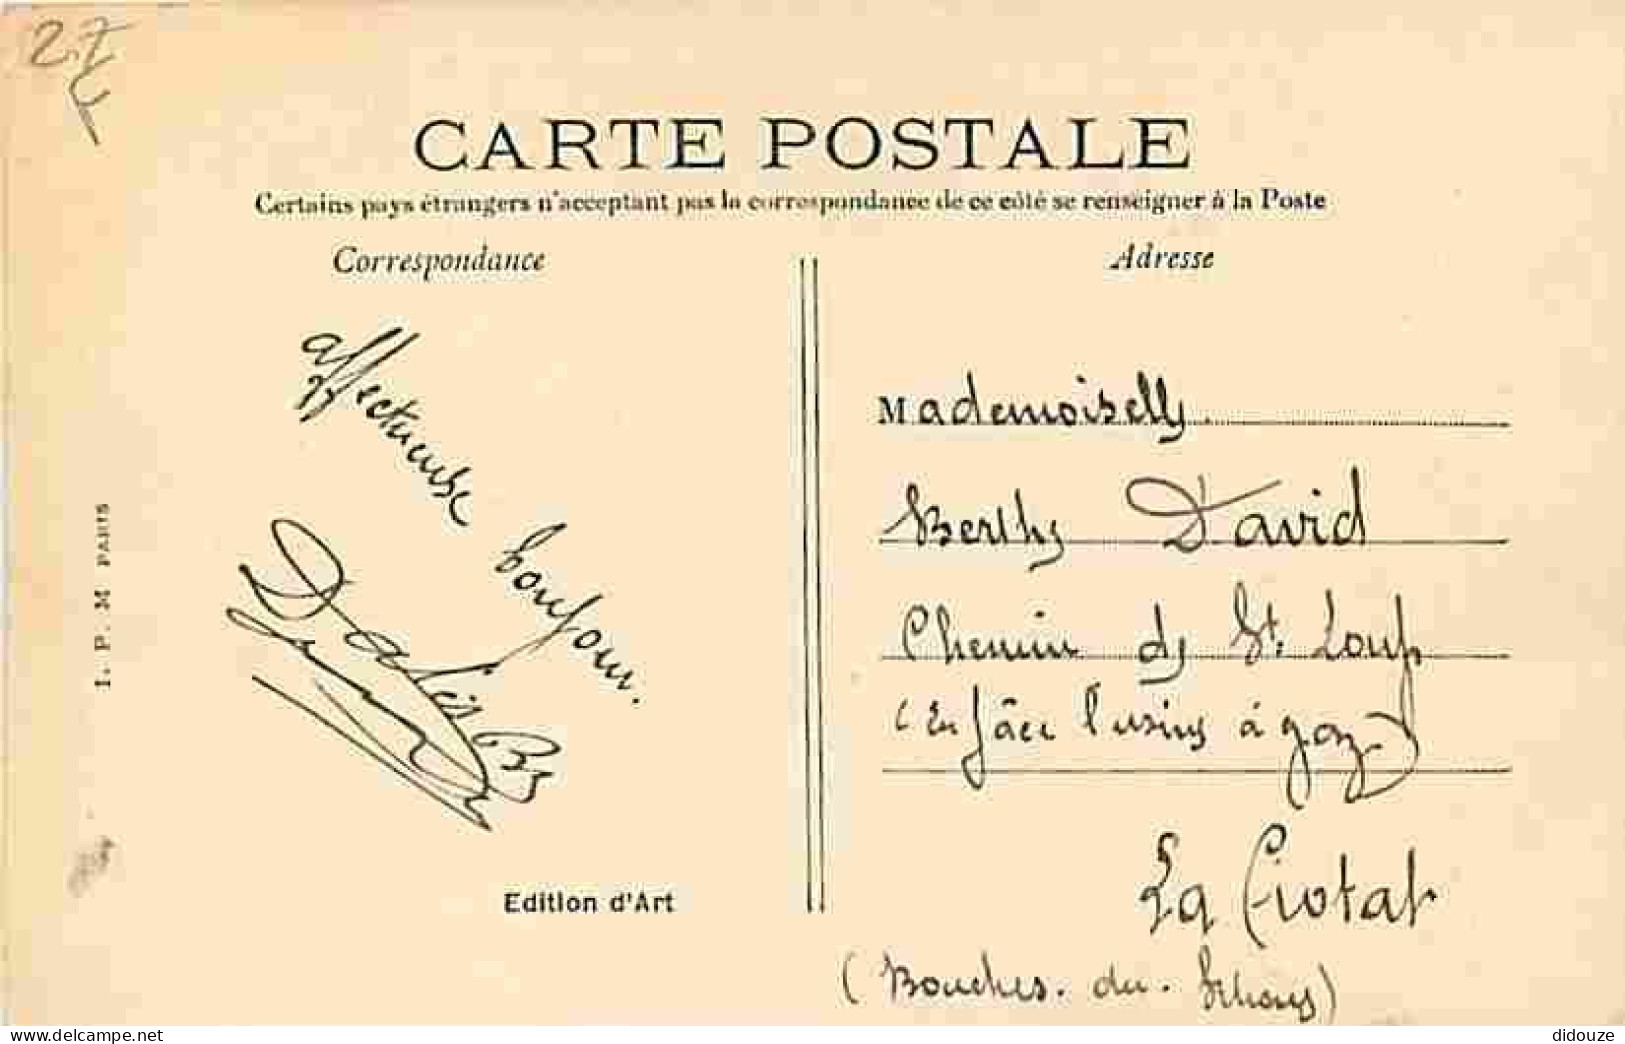 27
CARTE POSTALE
Certains pays étrangers n'acceptant pas la correspondance de ce côté se renseigner à la Poste
Correspondance
Adresse
affectueuse
bonjour.
Mademoiselle
Berthe David
Chemin de St. Loup
(En face l'usine à gaz)
La Ciotat
(Bouches. du. Rhône)
Edition d'Art
I. P. M PARIS
www.delcampe.net
didouze